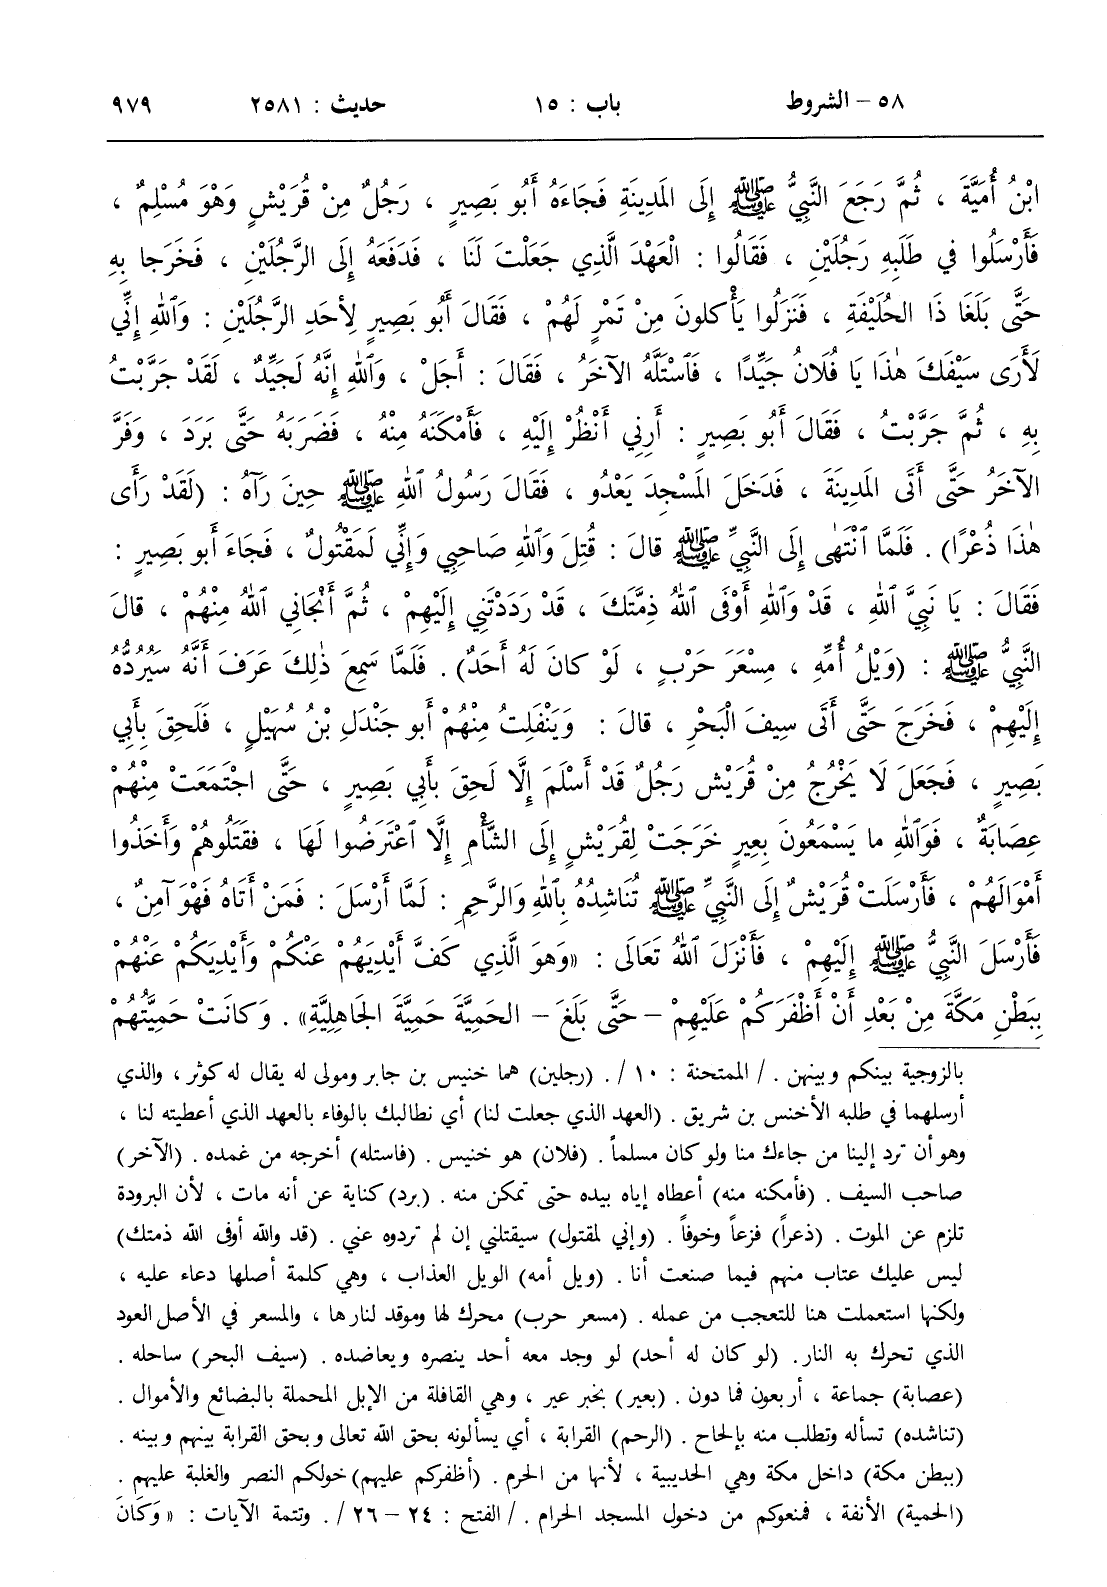 ٥٨ - الشروط باب : ١٥ حديث : ٢٥٨١ ٩٧٩
ابْنُ أُمَيَّةَ ، ثُمَّ رَجَعَ النَّبِيُّ ﷺ إِلَى المَدِينَةِ فَجَاءَهُ أَبُو بَصِيرٍ ، رَجُلٌ مِنْ قُرَيْشٍ وَهْوَ مُسْلِمٌ ،
فَأَرْسَلُوا في طَلَبِهِ رَجُلَيْنِ ، فَقَالُوا : الْعَهْدَ الَّذِي جَعَلْتَ لَنَا ، فَدَفَعَهُ إِلَى الرَّجُلَيْنِ ، فَخَرَجا بِهِ
حَتَّى بَلَغَا ذَا الحُلَيْفَةِ ، فَنَزَلُوا يَأْكلونَ مِنْ تَمْرٍ لَهُمْ ، فَقَالَ أَبُو بَصِيرٍ لِأَحَدِ الرَّجُلَيْنِ : وَٱللهِ إِنِّي
لَأَرَى سَيْفَكَ هٰذَا يَا فُلَانُ جَيِّدًا ، فَٱسْتَلَّهُ الآخَرُ ، فَقَالَ : أَجَلْ ، وَٱللهِ إِنَّهُ لَجَيِّدٌ ، لَقَدْ جَرَّبْتُ
بِهِ ، ثُمَّ جَرَّبْتُ ، فَقَالَ أَبُو بَصِيرٍ : أَرِنِي أَنْظُرْ إِلَيْهِ ، فَأَمْكَنَهُ مِنْهُ ، فَضَرَبَهُ حَتَّى بَرَدَ ، وَفَرَّ
الآخَرُ حَتَّى أَتَى المَدِينَةَ ، فَدَخَلَ المَسْجِدَ يَعْدُو ، فَقَالَ رَسُولُ ٱللهِ ﷺ حِينَ رَآهُ : (لَقَدْ رَأَى
هٰذَا ذُعْرًا) . فَلَمَّا ٱنْتَهٰى إِلَى النَّبِيِّ ﷺ قالَ : قُتِلَ وَٱللهِ صَاحِبِي وَإِنِّي لَمَقْتُولٌ ، فَجَاءَ أَبو بَصِيرٍ :
فَقَالَ : يَا نَبِيَّ ٱللهِ ، قَدْ وَٱللهِ أَوْفَى ٱللهُ ذِمَّتَكَ ، قَدْ رَدَدْتَنِي إِلَيْهِمْ ، ثُمَّ أَنْجَانِي ٱللهُ مِنْهُمْ ، قالَ
النَّبِيُّ ﷺ : (وَيْلُ أُمِّهِ ، مِسْعَرَ حَرْبٍ ، لَوْ كانَ لَهُ أَحَدٌ) . فَلَمَّا سَمِعَ ذٰلِكَ عَرَفَ أَنَّهُ سَيُرُدُّهُ
إِلَيْهِمْ ، فَخَرَجَ حَتَّى أَتَى سِيفَ الْبَحْرِ ، قالَ : وَيَنْفَلِتُ مِنْهُمْ أَبو جَنْدَلِ بْنُ سُهَيْلٍ ، فَلَحِقَ بِأَبِي
بَصِيرٍ ، فَجَعَلَ لَا يَخْرُجُ مِنْ قُرَيْش رَجُلٌ قَدْ أَسْلَمَ إِلَّا لَحِقَ بِأَبِي بَصِيرٍ ، حَتَّى اجْتَمَعَتْ مِنْهُمْ
عِصَابَةٌ ، فَوَٱللهِ ما يَسْمَعُونَ بِعِيرٍ خَرَجَتْ لِقُرَيْشٍ إِلَى الشَّأْمِ إِلَّا ٱعْتَرَضُوا لَهَا ، فَقَتَلُوهُمْ وَأَخَذُوا
أَمْوَالَهُمْ ، فَأَرْسَلَتْ قُرَيْشٌ إِلَى النَّبِيِّ ﷺ تُنَاشِدُهُ بِٱللهِ وَالرَّحِمِ : لَمَّا أَرْسَلَ : فَمَنْ أَتَاهُ فَهْوَ آمِنٌ ،
فَأَرْسَلَ النَّبِيُّ ﷺ إِلَيْهِمْ ، فَأَنْزَلَ ٱللهُ تَعَالَى : «وَهوَ الَّذِي كَفَّ أَيْدِيَهُمْ عَنْكُمْ وَأَيْدِيَكُمْ عَنْهُمْ
بِبَطْنِ مَكَّةَ مِنْ بَعْدِ أَنْ أَظْفَرَكُمْ عَلَيْهِمْ - حَتَّى بَلَغَ - الحَمِيَّةَ حَمِيَّةَ الجَاهِلِيَّةِ» . وَكانَتْ حَمِيَّتُهُمْ
بالزوجية بينكم وبينهن . / الممتحنة : ١٠ / . (رجلين) هما خنيس بن جابر ومولى له يقال له كوثر ، والذي
أرسلهما في طلبه الأخنس بن شريق . (العهد الذي جعلت لنا) أي نطالبك بالوفاء بالعهد الذي أعطيته لنا ،
وهو أن ترد إلينا من جاءك منا ولو كان مسلماً . (فلان) هو خنيس . (فاستله) أخرجه من غمده . (الآخر)
صاحب السيف . (فأمكنه منه) أعطاه إياه بيده حتى تمكن منه . (برد) كناية عن أنه مات ، لأن البرودة
تلزم عن الموت . (ذعراً) فزعاً وخوفاً . (وإني لمقتول) سيقتلني إن لم تردوه عني . (قد والله أوفى الله ذمتك)
ليس عليك عتاب منهم فيما صنعت أنا . (ويل أمه) الويل العذاب ، وهي كلمة أصلها دعاء عليه ،
ولكنها استعملت هنا للتعجب من عمله . (مسعر حرب) محرك لها وموقد لنارها ، والمسعر في الأصل العود
الذي تحرك به النار. (لو كان له أحد) لو وجد معه أحد ينصره ويعاضده . (سيف البحر) ساحله .
(عصابة) جماعة ، أربعون فما دون . (بعير) بخبر عير ، وهي القافلة من الإبل المحملة بالبضائع والأموال .
(تناشده) تسأله وتطلب منه بإلحاح . (الرحم) القرابة ، أي يسألونه بحق الله تعالى وبحق القرابة بينهم وبينه .
(ببطن مكة) داخل مكة وهي الحديبية ، لأنها من الحرم . (أظفركم عليهم) خولكم النصر والغلبة عليهم .
(الحمية) الأنفة ، فمنعوكم من دخول المسجد الحرام . / الفتح : ٢٤ - ٢٦ / . وتتمة الآيات : « وَكَانَ